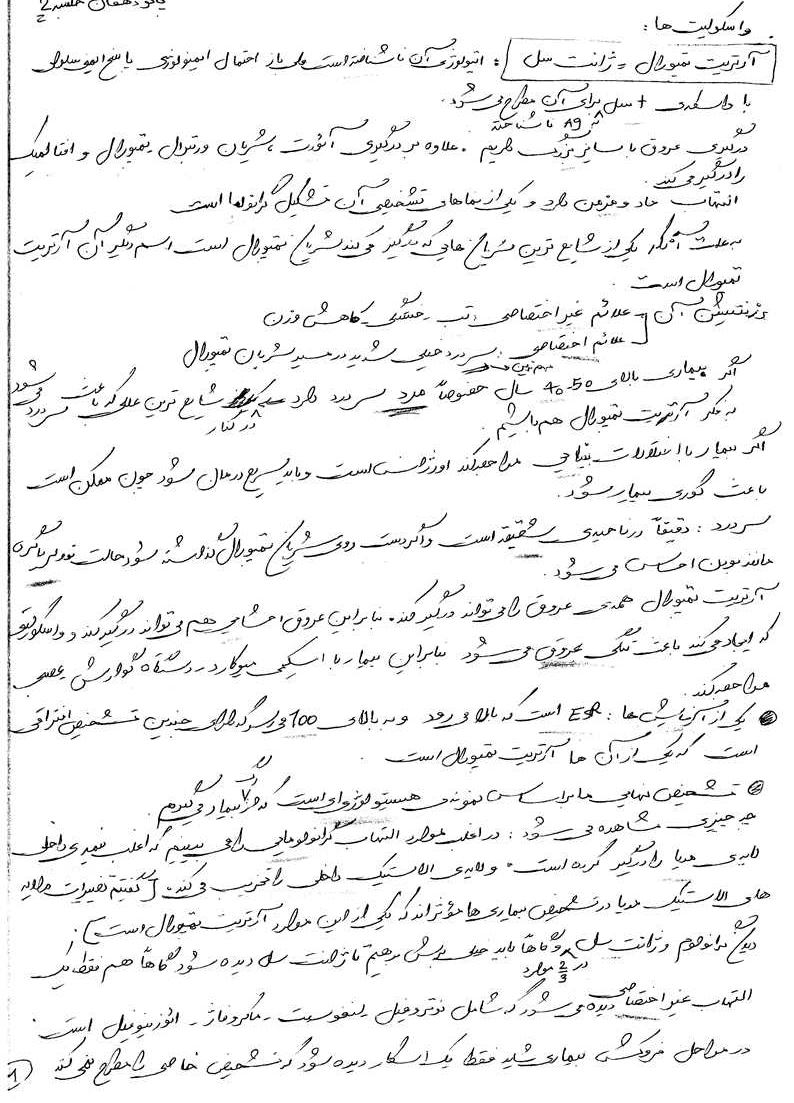 پاتو دهقان جلسه 2
واسکولیت ها:
آرتریت تمپورال = ژانت سل : اتیولوژی آن ناشناخته است ولی باز احتمال ایمونولوژی با پاسخ ایمیون سلولار
با واسطه ی + سل برای آن مطرح می شود.
Ag ناشناخته
درگیری عروق با سایز بزرگ داریم. علاوه بر درگیری آئورت، شریان ورتبرال، تمپورال و افتالمیک
را درگیر می کند.
التهاب حاد و مزمن دارد و یکی از نماهای تشخیصی آن تشکیل گرانولوما است
به علت آنکه یکی از شایع ترین شریان هایی که درگیر می کند شریان تمپورال است اسم دیگر آن آرتریت
تمپورال است.
پرزنتیشن آن علائم غیراختصاصی: تب - خستگی - کاهش وزن
علائم اختصاصی: سردرد خیلی شدید در مسیر شریان تمپورال
مهم ترین
اگر بیماری بالای 50-40 سال خصوصاً مرد سردرد دارد شایع ترین عللی که باعث سردرد می شود
در کنار
به فکر آرتریت تمپورال هم باشیم.
اگر بیمار با اختلالات بینایی مراجعه کند اورژانس است و باید سریع درمان شود چون ممکن است
باعث کوری بیمار شود.
سردرد: دقیقاً در ناحیه ی شقیقه است و اگر دست روی شریان تمپورال گذاشته شود حالت ندولر یا گره
مانند بودن احساس می شود.
آرتریت تمپورال همه ی عروق را می تواند درگیر کند. بنابراین عروق احشایی هم می تواند درگیر کند و واسکولیتی
که ایجاد می کند باعث تنگی عروق می شود بنابراین بیمار با ایسکمی میوکارد - دستگاه گوارش - عصبی
مراجعه کند.
یکی از آزمایش ها: ESR است که بالا می رود و به بالای 100 می رسد که دارای چندین تشخیص افتراقی
است که یکی از آن ها آرتریت تمپورال است.
تشخیص نهایی ما بر اساس نمونه ی هیستولوژی ای است که از بیمار می گیریم.
چه چیزی مشاهده می شود: در اغلب موارد التهاب گرانولومایی را می بینیم که اغلب نیمه ی داخلی
لایه ی مدیا را درگیر کرده است. و لایه ی الاستیک داخلی را تخریب می کند. [گفتیم تغییرات در لایه
های الاستیک مدیا در تشخیص بیماری ها مؤثراند که یکی از این موارد آرتریت تمپورال است].
گرانولوم و ژانت سل و گاهاً باید خیلی برش بدهیم تا ژانت سل دیده شود گاهاً هم فقط یک
در 2/3 موارد
التهاب غیراختصاصی دیده می شود که شامل نوتروفیل - لنفوسیت - ماکروفاژ - ائوزینوفیل است.
در مراحل فروکشی بیماری شاید فقط یک اسکار دیده شود که تشخیص خاصی را مطرح نمی کند
1